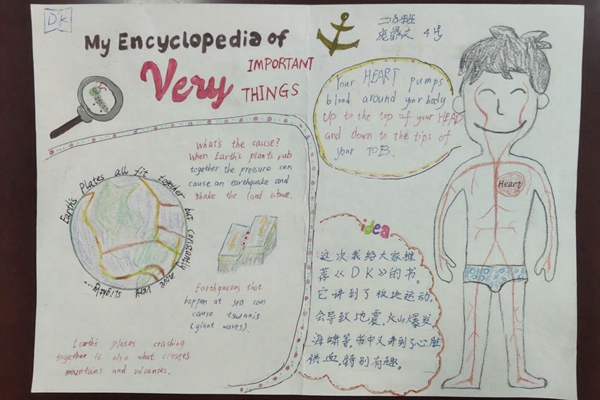 DK
My Encyclopedia of
Very IMPORTANT
THINGS
4号
Your HEART pumps
blood around your body
up to the top of your HEAD
and down to the tips of
your TOES.
Heart
What's the cause?
When Earth's plants rub
together the pressure can
cause an earthquake and
shake the land above.
Earth's Plates all fit together but constantly
Earthquakes that
happen at sea can
cause tsunamis
(giant waves).
Earth's plates crashing
together is also what creates
mountains and volcanoes.
idea
这次我给大家推
荐《DK》的书。
它讲到了板块运动,
会导致地震、火山爆发、
海啸等,书中又讲到了心脏
供血,特别有趣。